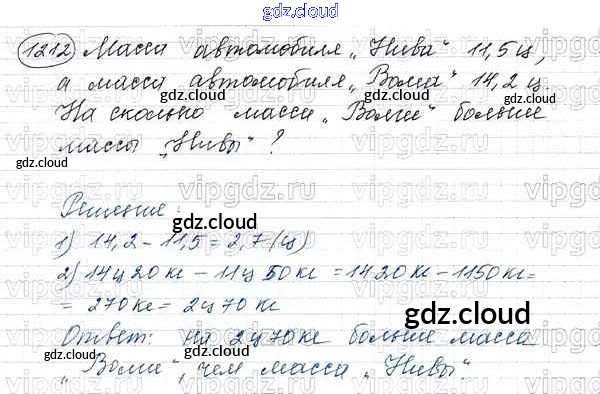 gdz.cloud
1212 Масса автомобиля „Нива" 11,5 ц,
а масса автомобиля „Волга" 14,2 ц.
gdz.cloud gdz.cloud
На сколько масса „Волги" больше
массы „Нивы"?
gdz.cloud
vipgdz.ru vipgdz.ru vipgdz.ru
Решение:
gdz.cloud
1) 14,2 - 11,5 = 2,7 (ц)
2) 14 ц 20 кг - 11 ц 50 кг = 1420 кг - 1150 кг =
= 270 кг = 2 ц 70 кг
gdz.cloud
Ответ: на 2 ц 70 кг больше масса
gdz.cloud gdz.cloud
„Волги", чем масса „Нивы".